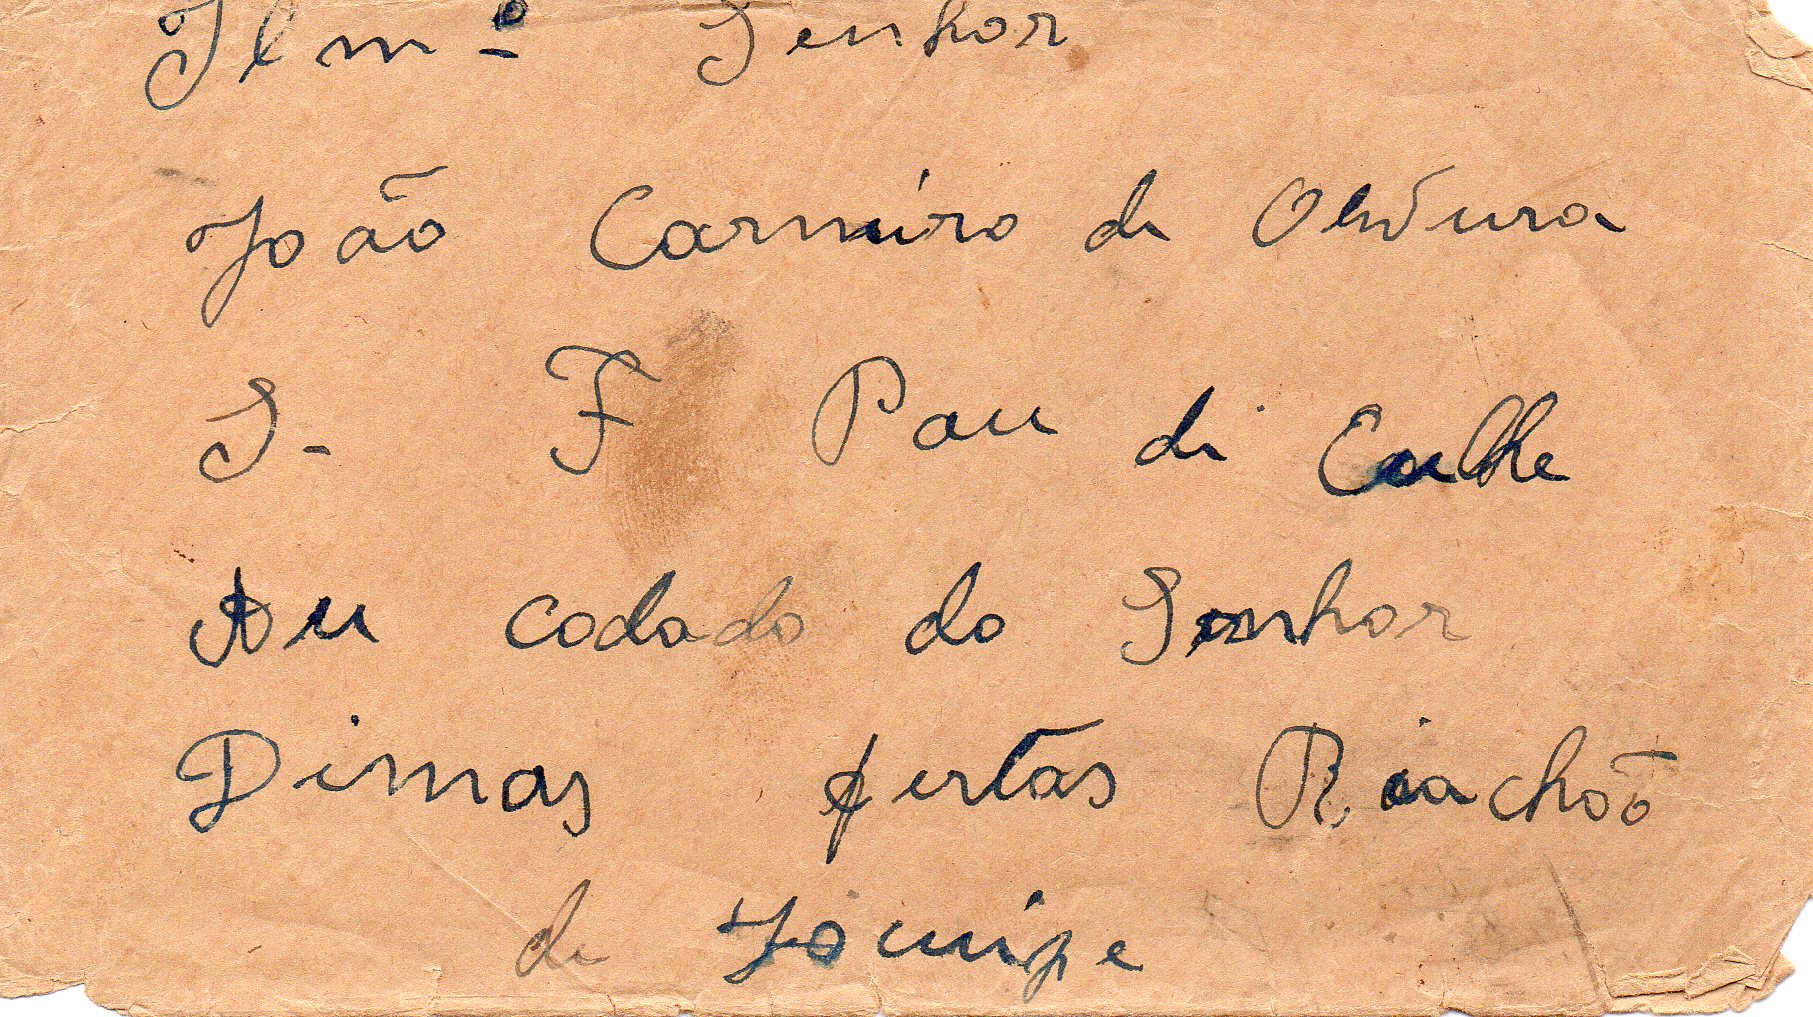 Ilmº Senhor
João Carneiro de Oliveira
S. F Pau de Colhe
Au codado do Senhor
Dimas fertas Riachão
de Jacuipe